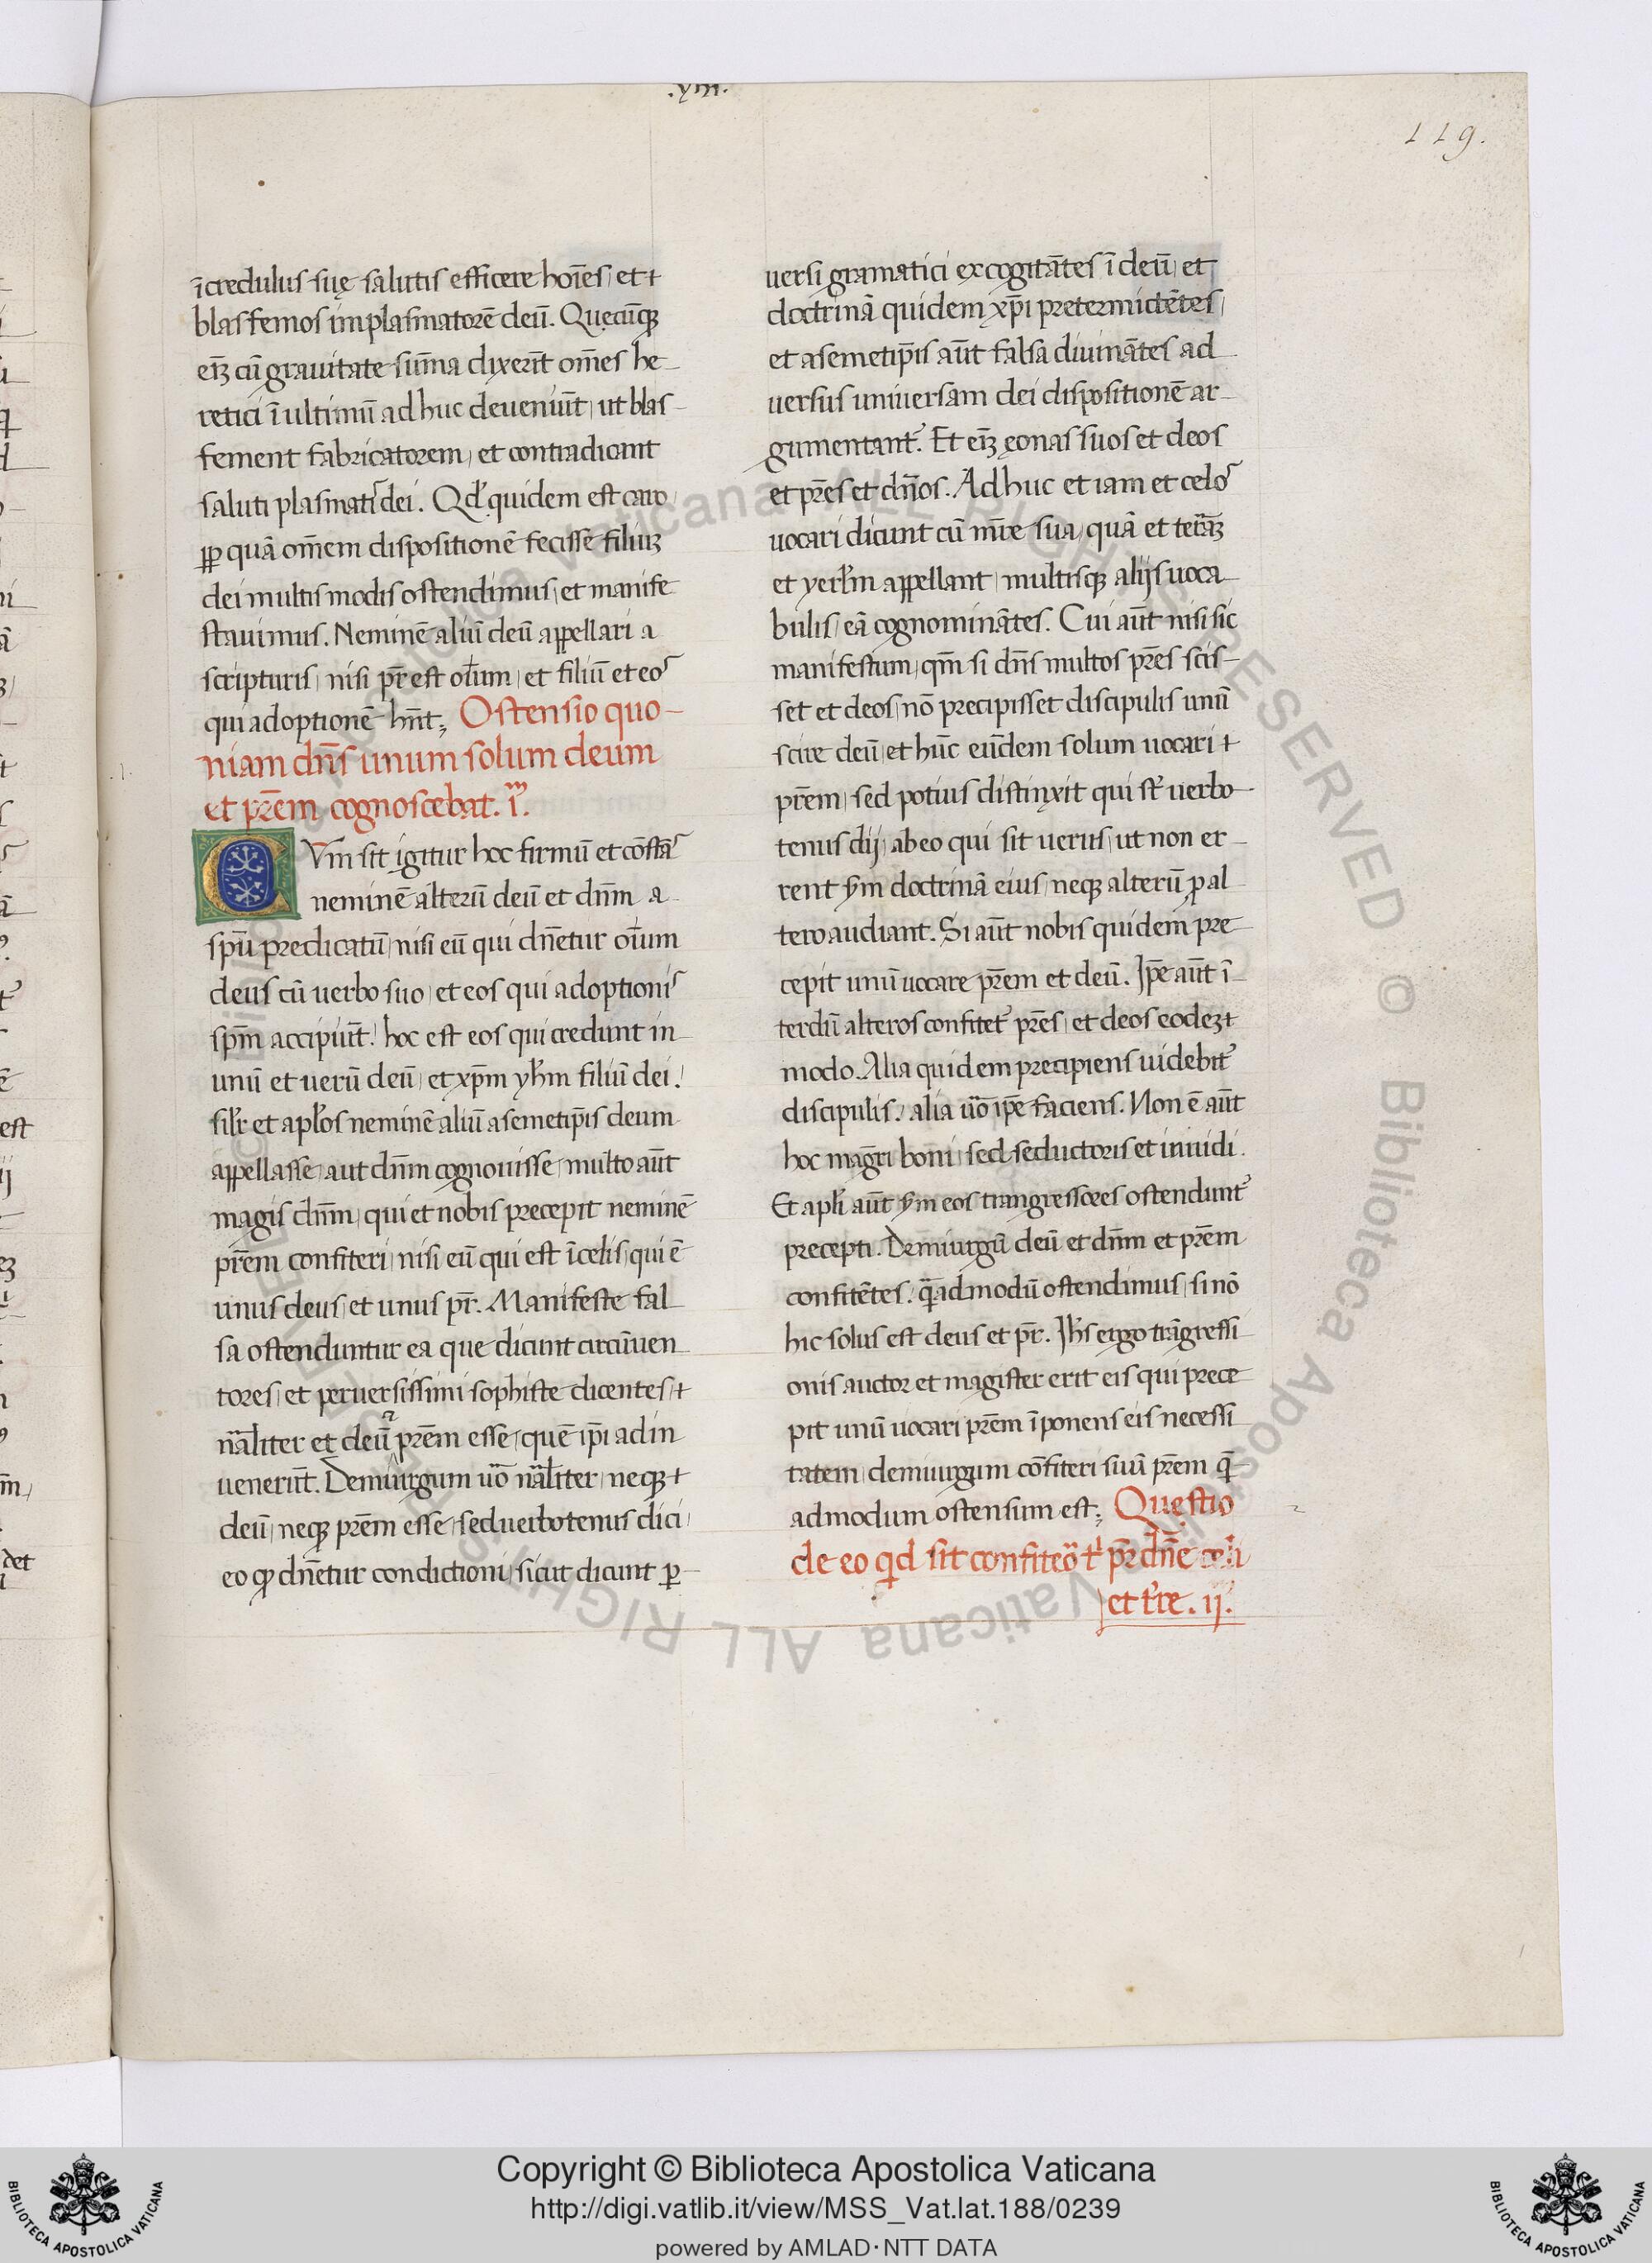 .yın.
119.
ĩcredulus suę salutis efficere hoĩes, et
blasfemos ĩ plasmatorẽ deũ. Quęcũqꝫ
eĩꝫ cũ grauitate sum̃a dixerĩt om̃es he-
retici ĩ ultimũ ad huc deueniũt, ut blas-
fement fabricatorem, et contradicant
saluti plasmatis dei. Qđ quidem est caro,
ꝓpꝑ quã om̃em dispositionẽ fecisse filiuꝫ
dei multis modis ostendimus, et manife
stauimus. Neminẽ aliũ deũ appellari a
scripturis, nisi pr̃ est oĩum, et filiũ et eos
qui adoptionẽ hñt; Ostensio quo-
niam dñs unum solum deum
et pr̃em cognoscebat. ĩ.
CVm sit igitur hoc firmũ et cõstãs
neminẽ alterũ deũ et dñm a
spũ predicatũ, nisi eũ qui dñetur oĩum
deus cũ uerbo suo, et eos qui adoptionis
spm̃ accipiũt! hoc est eos qui credunt in
unũ et uerũ deũ, et xp̃m yħm filiũ dei!
silr̃ et apłos neminẽ aliũ a semetip̃is deum
appellasse, aut dñm cognouisse, multo aũt
magis dñm, qui et nobis precepit neminẽ
pr̃em confiteri, nisi eũ qui est ĩ celis, qui ẽ
unus deus, et unus pr̃. Manifeste fal
sa ostenduntur ea que dicunt circũuen
tores, et peruersissimi sophiste dicentes,
nãliter et deũ pr̃em esse, quẽ ip̃i adin
uenerũt. Demiurgum uõ nãliter, neqꝫ
deũ, neqꝫ pr̃em esse, sed uerbo tenus dici,
eo ꝙ dñetur condictioni, sicut dicunt ꝑ-
uersi gramatici excogitãtes ĩ deũ, et
doctrinã quidem xp̃i pretermictẽtes,
et a semetip̃is aũt falsa diuinãtes ad
uersus uniuersam dei dispositionẽ ar-
gumentant᷑. Et eĩꝫ ęonas suos et deos
et pr̃es et dños. Ad huc et iam et celos
uocari dicunt cũ mr̃e sua, quã et terãꝫ
et yerłm appellant, multisqꝫ alijs uoca
bulis, eã cognominãtes. Cui aũt nisi sic
manifestum, qm̃ si dñs multos pr̃es scis-
set et deos, nõ precipisset discipulis unũ
scire deũ, et hũc eũdem solum uocari
pr̃em, sed potius distinxit qui st̃ uerbo
tenus dij, ab eo qui sit uerus, ut non er-
rent ꝫm doctrinã eius, neqꝫ alterũ ꝓ al
tero audiant. Si aũt nobis quidem pre
cepit unũ uocare pr̃em et deũ. Ip̃e aũt ĩ-
terdũ alteros confitet᷑ pr̃es, et deos eodeꝫ
modo. Alia quidem precipiens uidebit᷑
discipulis! alia uõ ip̃e faciens. Non ẽ aũt
hoc magr̃i boni, sed seductoris et inuidi.
Et apłi aũt ꝫm eos trangressores ostendunt᷑
precepti. Demiurgũ deũ et dñm et pr̃em
confitẽtes. quẽadmodũ ostendimus, si nõ
hic solus est deus et pr̃. Iħs ergo trãgressi
onis auctor et magister erit eis qui prece
pit unũ uocari pr̃em ĩponens eis necessi
tatem, demiurgum cõfiteri suũ pr̃em quẽ-
admodum ostensum est; Quęstio
de eo qđ sit confiteõr tˡ pr̃ dñe celi
et tr̃re. ıȷ.
Copyright © Biblioteca Apostolica Vaticana
http://digi.vatlib.it/view/MSS_Vat.lat.188/0239
powered by AMLAD·NTT DATA
BIBLIOTECA APOSTOLICA VATICANA
BIBLIOTECA APOSTOLICA VATICANA